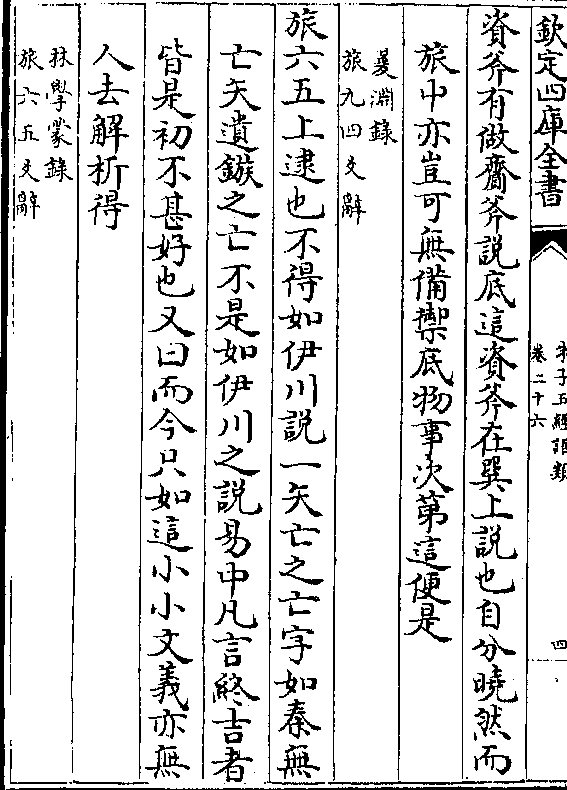 欽定四庫全書
朱子五經語類
卷二十六
四
資斧有做齎斧說底這資斧在巽上說也自分曉然而
旅中亦豈可無備禦底物事次第這便是
㬊淵錄
旅九四爻辭
旅六五上逮也不得如伊川說一矢亡之亡字如秦無
亡矢遺鏃之亡不是如伊川之說易中凡言終吉者
皆是初不甚好也又曰而今只如這小小文義亦無
人去解析得
林學蒙錄
旅六五爻辭